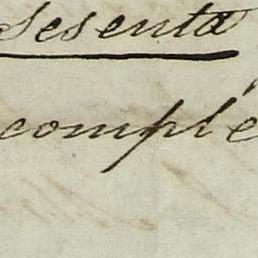 sesenta
comple